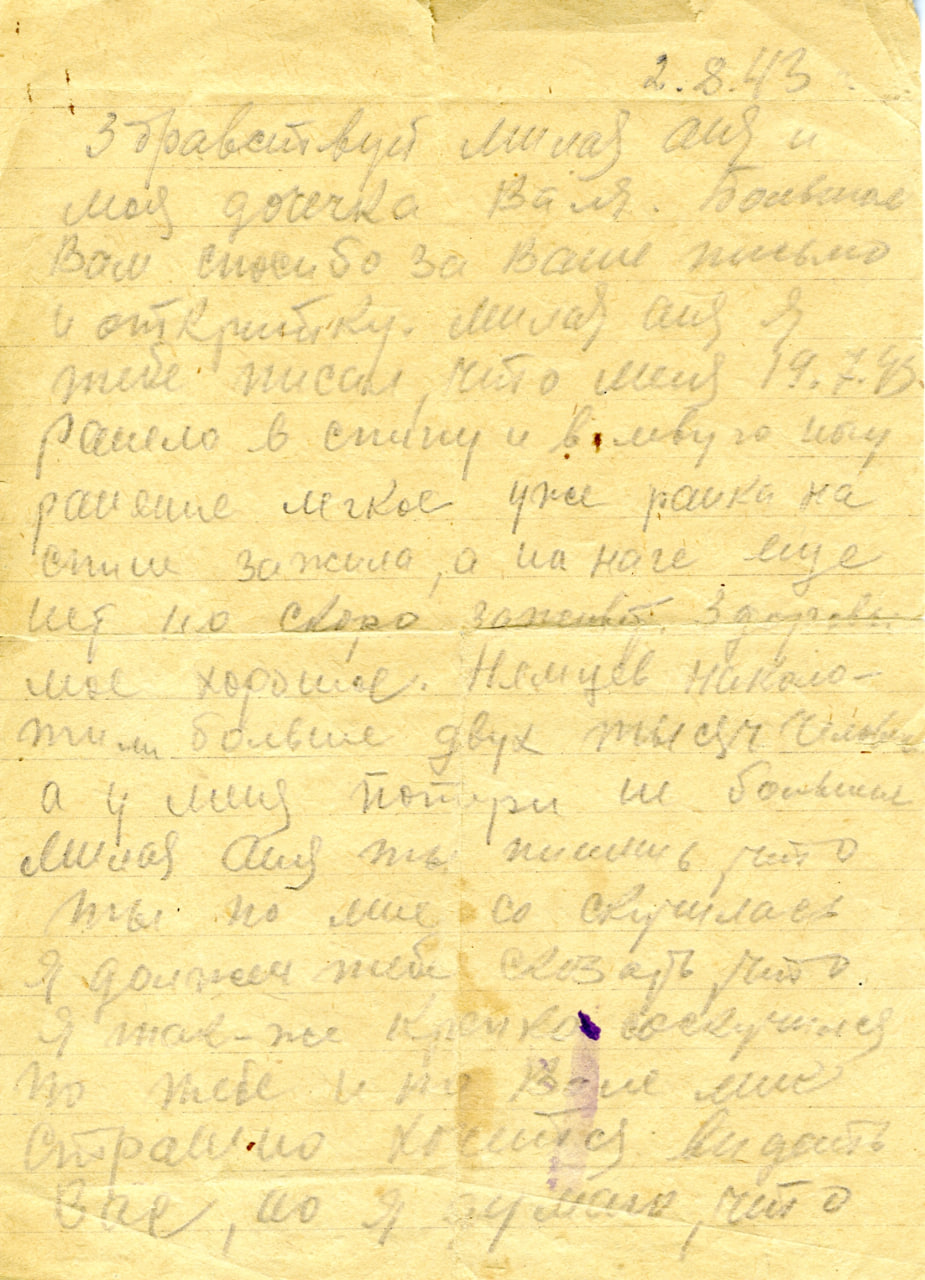 2.8.43
Здравствуй милая аня и
моя дочечка Валя. Большое
Вам спосибо за Ваше письмо
и открытку. милая аня Я
тебе писал, что меня 19.7.43
ранело в спину и в левую ногу
ранение легкое уже ранка на
спине зажила, а на наге еще
нет но скоро заживет. Здоровье
мое хорошое. Немцев наколо-
тили больше двух тысяч человек
а у меня потери не большие
милая аня ты пишишь, что
ты по мне со скучилась
Я должен тебе сказать, что
Я так-же крепко соскучился
по тебе и по Вале мне
Страшно хочится видать
Вас, но я думаю, что